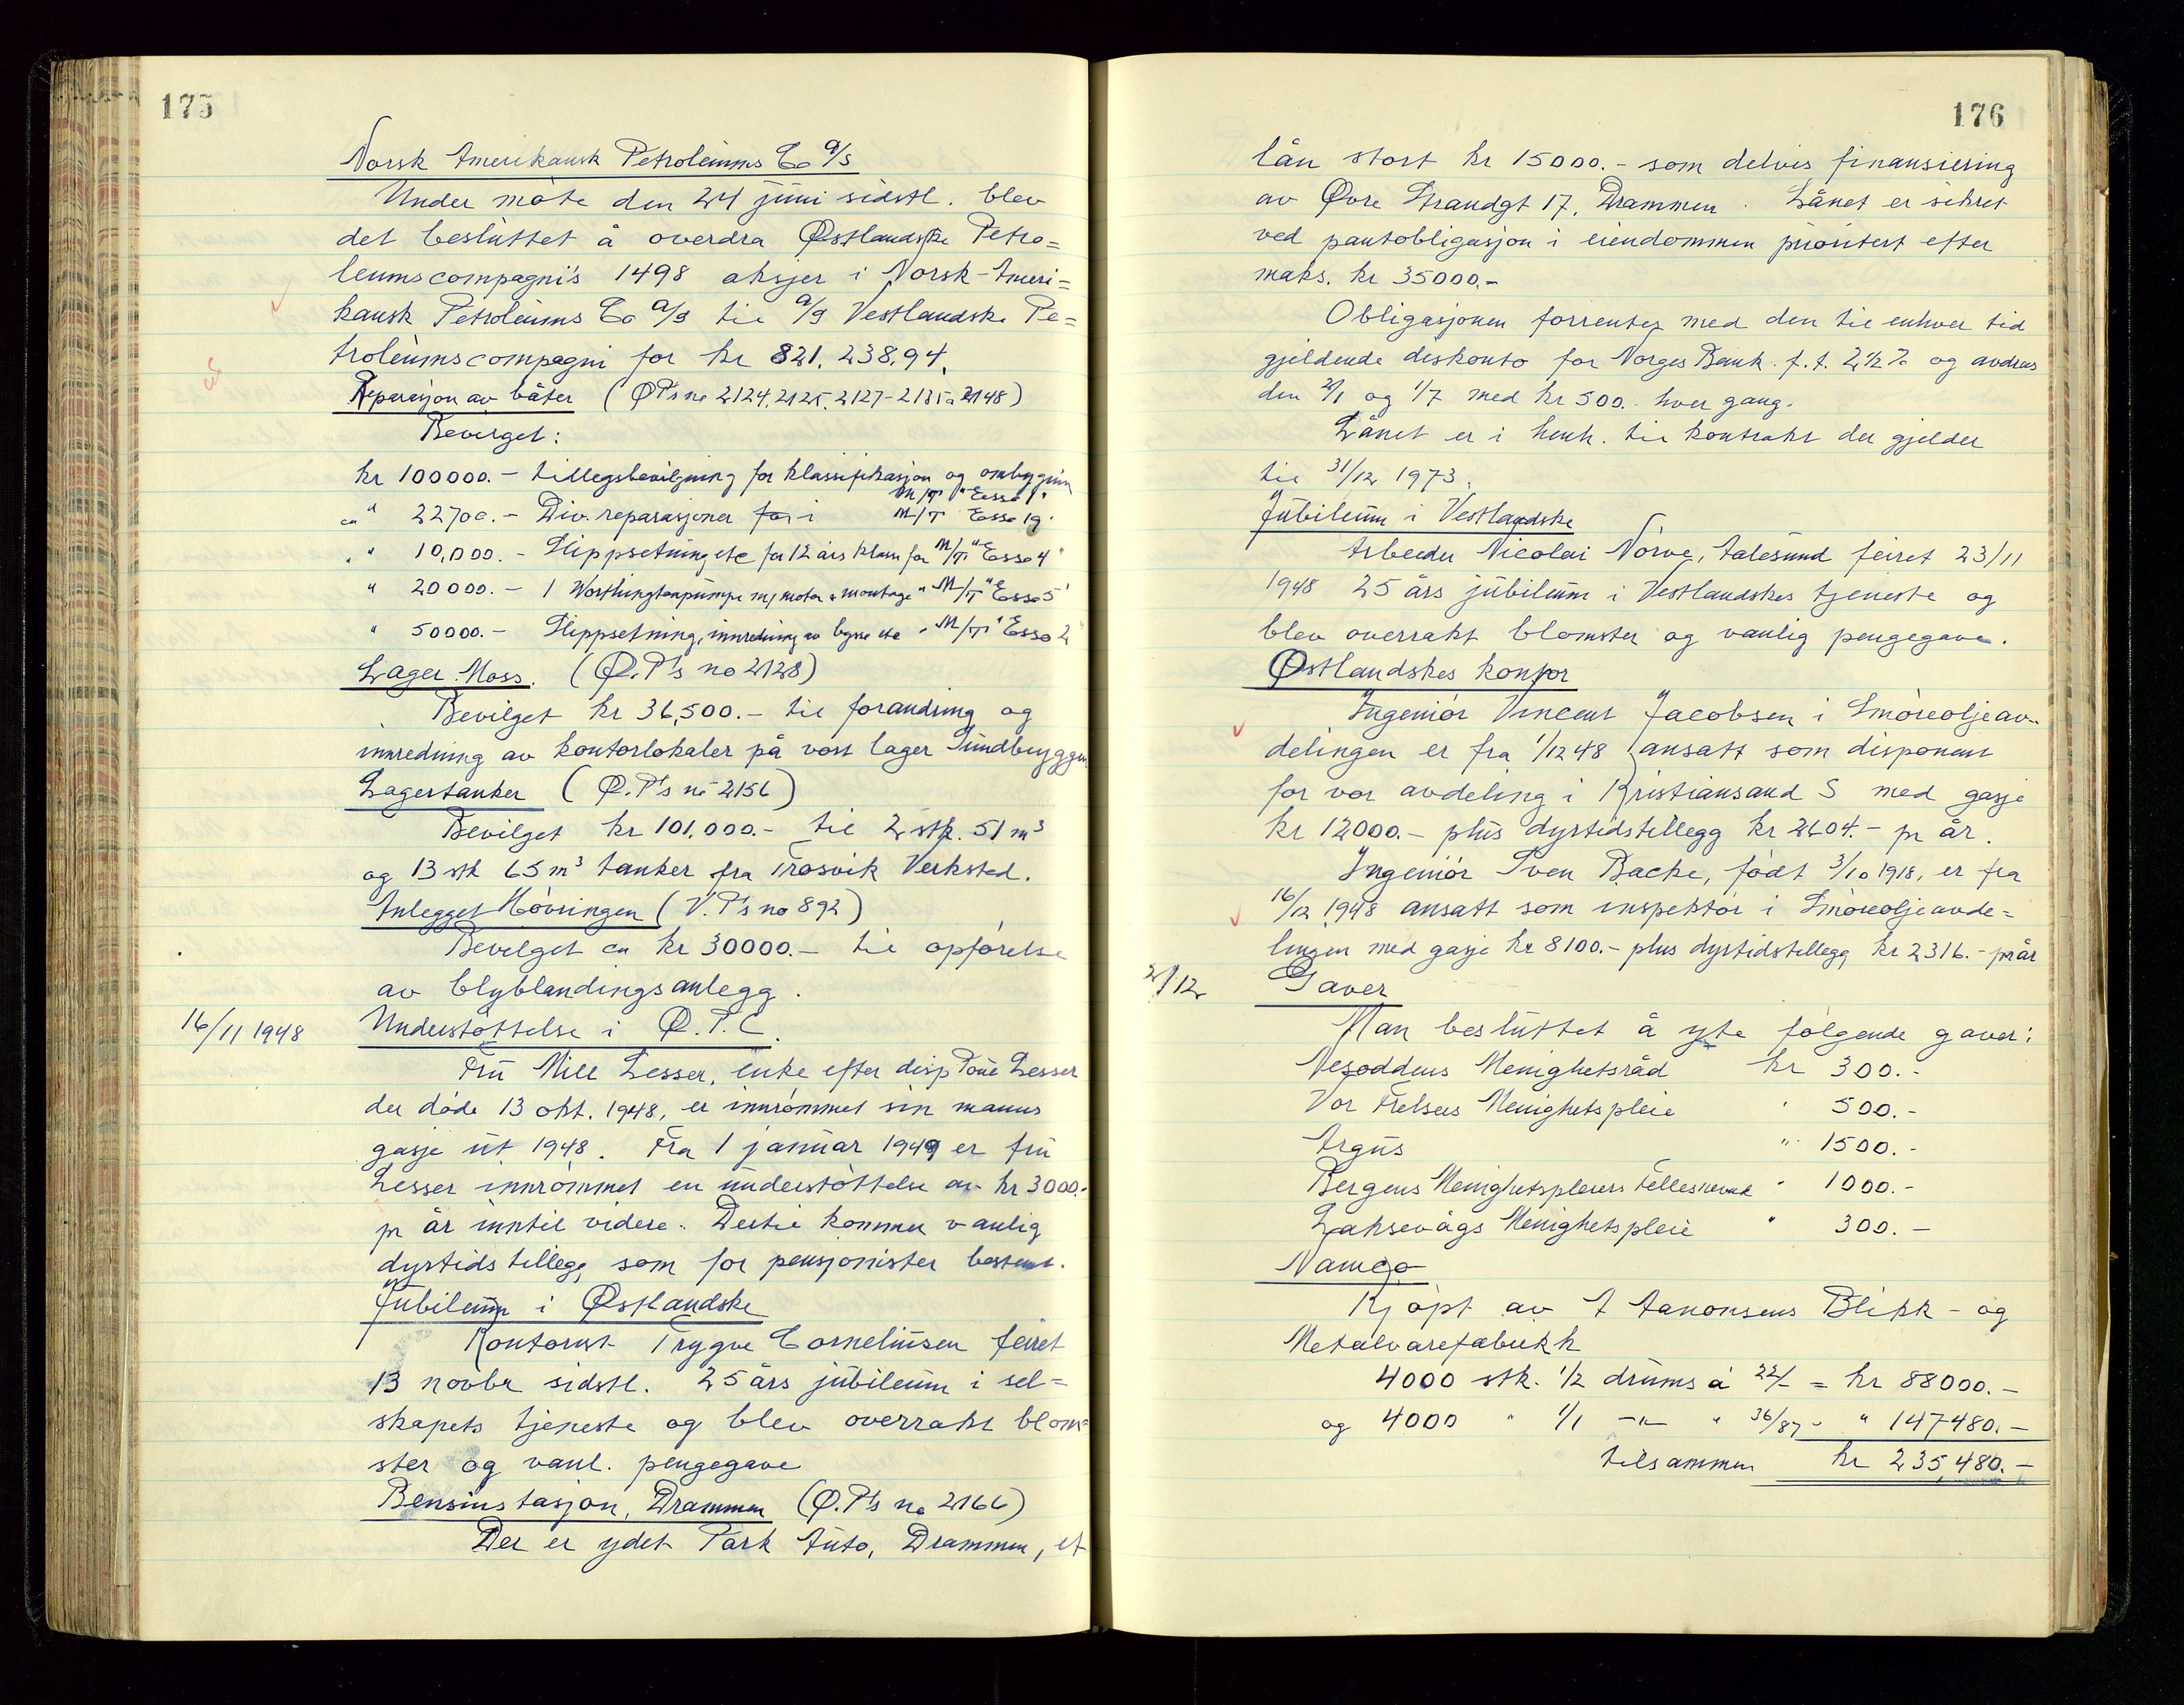 175
Norsk Amerikansk Petroleums Co a/s
Under møte den 24 juni sidstl. blev
det besluttet å overdra Østlandske Petro=
leumscompagnis 1498 aksjer i Norsk-Ameri=
kansk Petroleums Co a/s til a/s Vestlandske Pe=
troleumscompagni for kr 821.238,94.
Reparasjon av båter (ØP's no 2124, 2125, 2127-2135 a 2148)
Bevilget:
kr 100000.- tillegsbevilgning for klassifikasjon og ombygging
M/T "Esso 1"
ca " 22700.- Div. reparasjoner for i M/T Esso 19"
" 10,000.- Slippsetning etc for 12 års klass for M/T "Esso 4"
" 20000.- 1 Worthingtonpumpe m/ motor & montage " M/T "Esso 5"
" 50000.- Slippsetning, innredning av bysse etc " M/T "Esso 2"
Lager Moss. (Ø.P's no 2128)
Bevilget kr 36,500.- til forandring og
innredning av kontorlokaler på vort lager Sundbryggen
Lagertanker (Ø.P's no 2156)
Bevilget kr 101.000.- til 2 stk. 51 m³
og 13 stk 65 m³ tanker fra Trosvik Verksted.
Anlegget Høvringen (V.P's no 892)
Bevilget ca kr 30000.- til opførelse
av blyblandingsanlegg.
16/11 1948 Understøttelse i Ø.P.C.
Fru Mill Lesser, enke efter disp Lesser
der døde 13 okt. 1948, er innrømmet sin manns
gasje ut 1948. Fra 1 januar 1949 er fru
Lesser innrømmet en understøttelse av kr 3000.-
pr år inntil videre. Dertil kommer vanlig
dyrtidstillegg som for pensjonister bestemt.
Jubileum i Østlandske
Kontorist Trygve Corneliusen feiret
13 novbr sidstl. 25 års jubileum i sel=
skapets tjeneste og blev overrakt blom=
ster og vanl. pengegave
Bensinstasjon, Drammen (Ø.P's no 2166)
Der er ydet Park Auto, Drammen, et
176
lån stort kr 15000.- som delvis finansiering
av Øvre Strandgt 17, Drammen. Lånet er sikret
ved pantobligasjon i eiendommen prioritert efter
maks. kr 35000.-
Obligasjonen forrentes med den til enhver tid
gjeldende diskonto for Norges Bank f.t. 2½% og avdras
den 2/1 og 1/7 med kr 500.- hver gang.
Lånet er i henh. til kontrakt der gjelder
til 31/12 1973.
Jubileum i Vestlandske
Arbeider Nicolai Nørve, Aalesund feiret 23/11
1948 25 års jubileum i Vestlandskes tjeneste og
blev overrakt blomster og vanlig pengegave.
Østlandskes kontor
Ingeniør Vincent Jacobsen i Smøreoljeav-
delingen er fra 1/12 48 ansatt som disponent
for vor avdeling i Kristiansand S med gasje
kr 12000.- plus dyrtidstillegg kr 2604.- pr år.
Ingeniør Sven Backe, født 3/10 1918, er fra
16/12 1948 ansatt som inspektør i Smøreoljeavde=
lingen med gasje kr 8100.- plus dyrtidstillegg kr 2316.- pr år
2/12 Gaver
Man besluttet å yte følgende gaver:
Nesoddens Menighetsråd kr 300.-
Vor Frelsers Menighetspleie " 500.-
Argus " 1500.-
Bergens Menighetspleiers Fellesnevnd " 1000.-
Laksevågs Menighetspleie " 300.-
Namco
Kjøpt av A Aanonsens Blikk- og
Metalvarefabrikk
4000 stk. 1/2 drums á 22/- = kr 88000.-
og 4000 " 1/1 -"- " 36/87 - " 147480.-
tilsammen kr 235,480.-